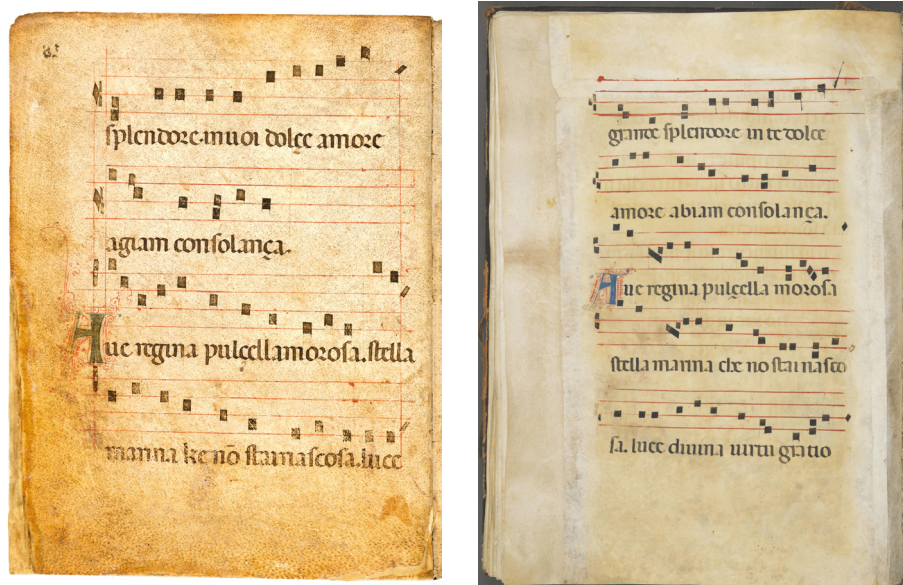 splendore.in uoi dolçe amore
agiam consolança.
Aue regina pulçella morosa. stella
marina ke nō stai nascosa. luce
grande splendore in te dolce
amore abiam consolança.
Aue regina pulçella morosa
stella marina che no stai nasco
sa. luce diuina uirtu gratio